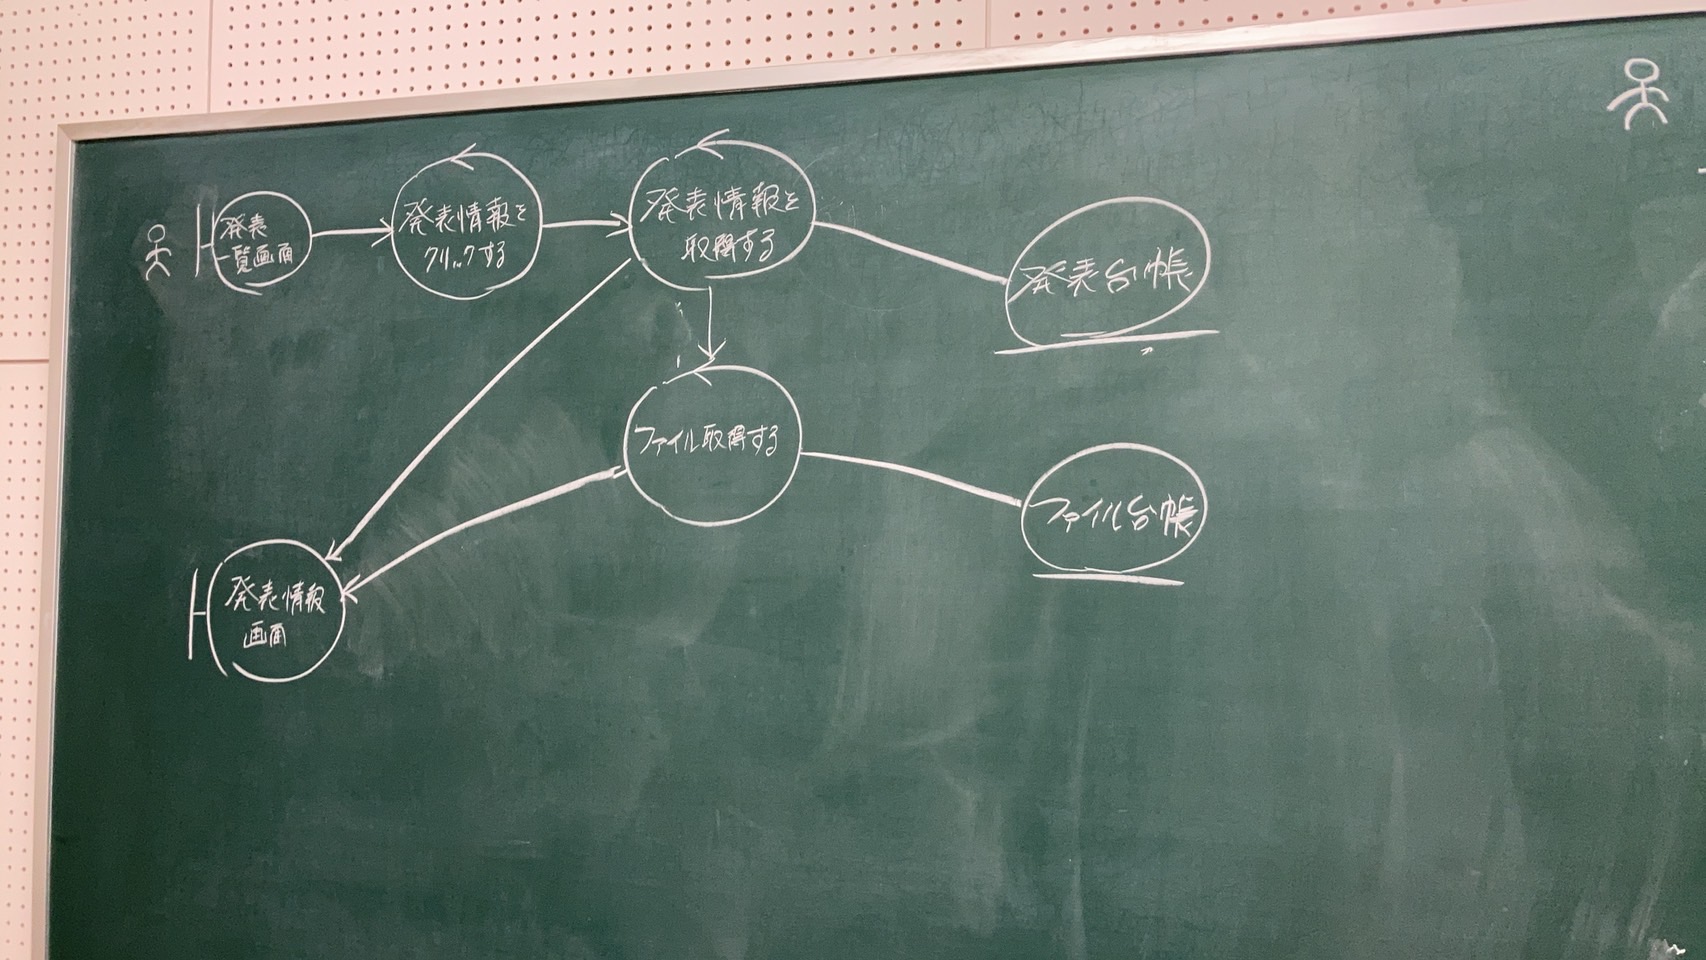 発表
一覧画面
発表情報を
クリックする
発表情報を
取得する
発表台帳
ファイル取得する
ファイル台帳
発表情報
画面